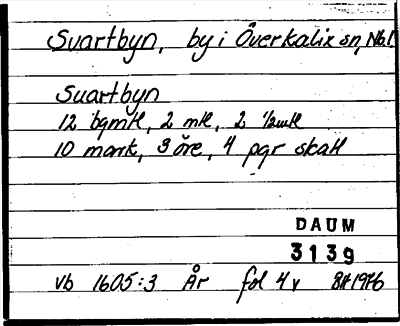 Svartbyn, by i Överkalix sn, Nb.l
Svartbyn
12 bgmtl, 2 mtl, 2 ½mtl
10 mark, 3 öre, 4 pgr skatt
DAUM
3139
vb 1605:3 År fol 4v